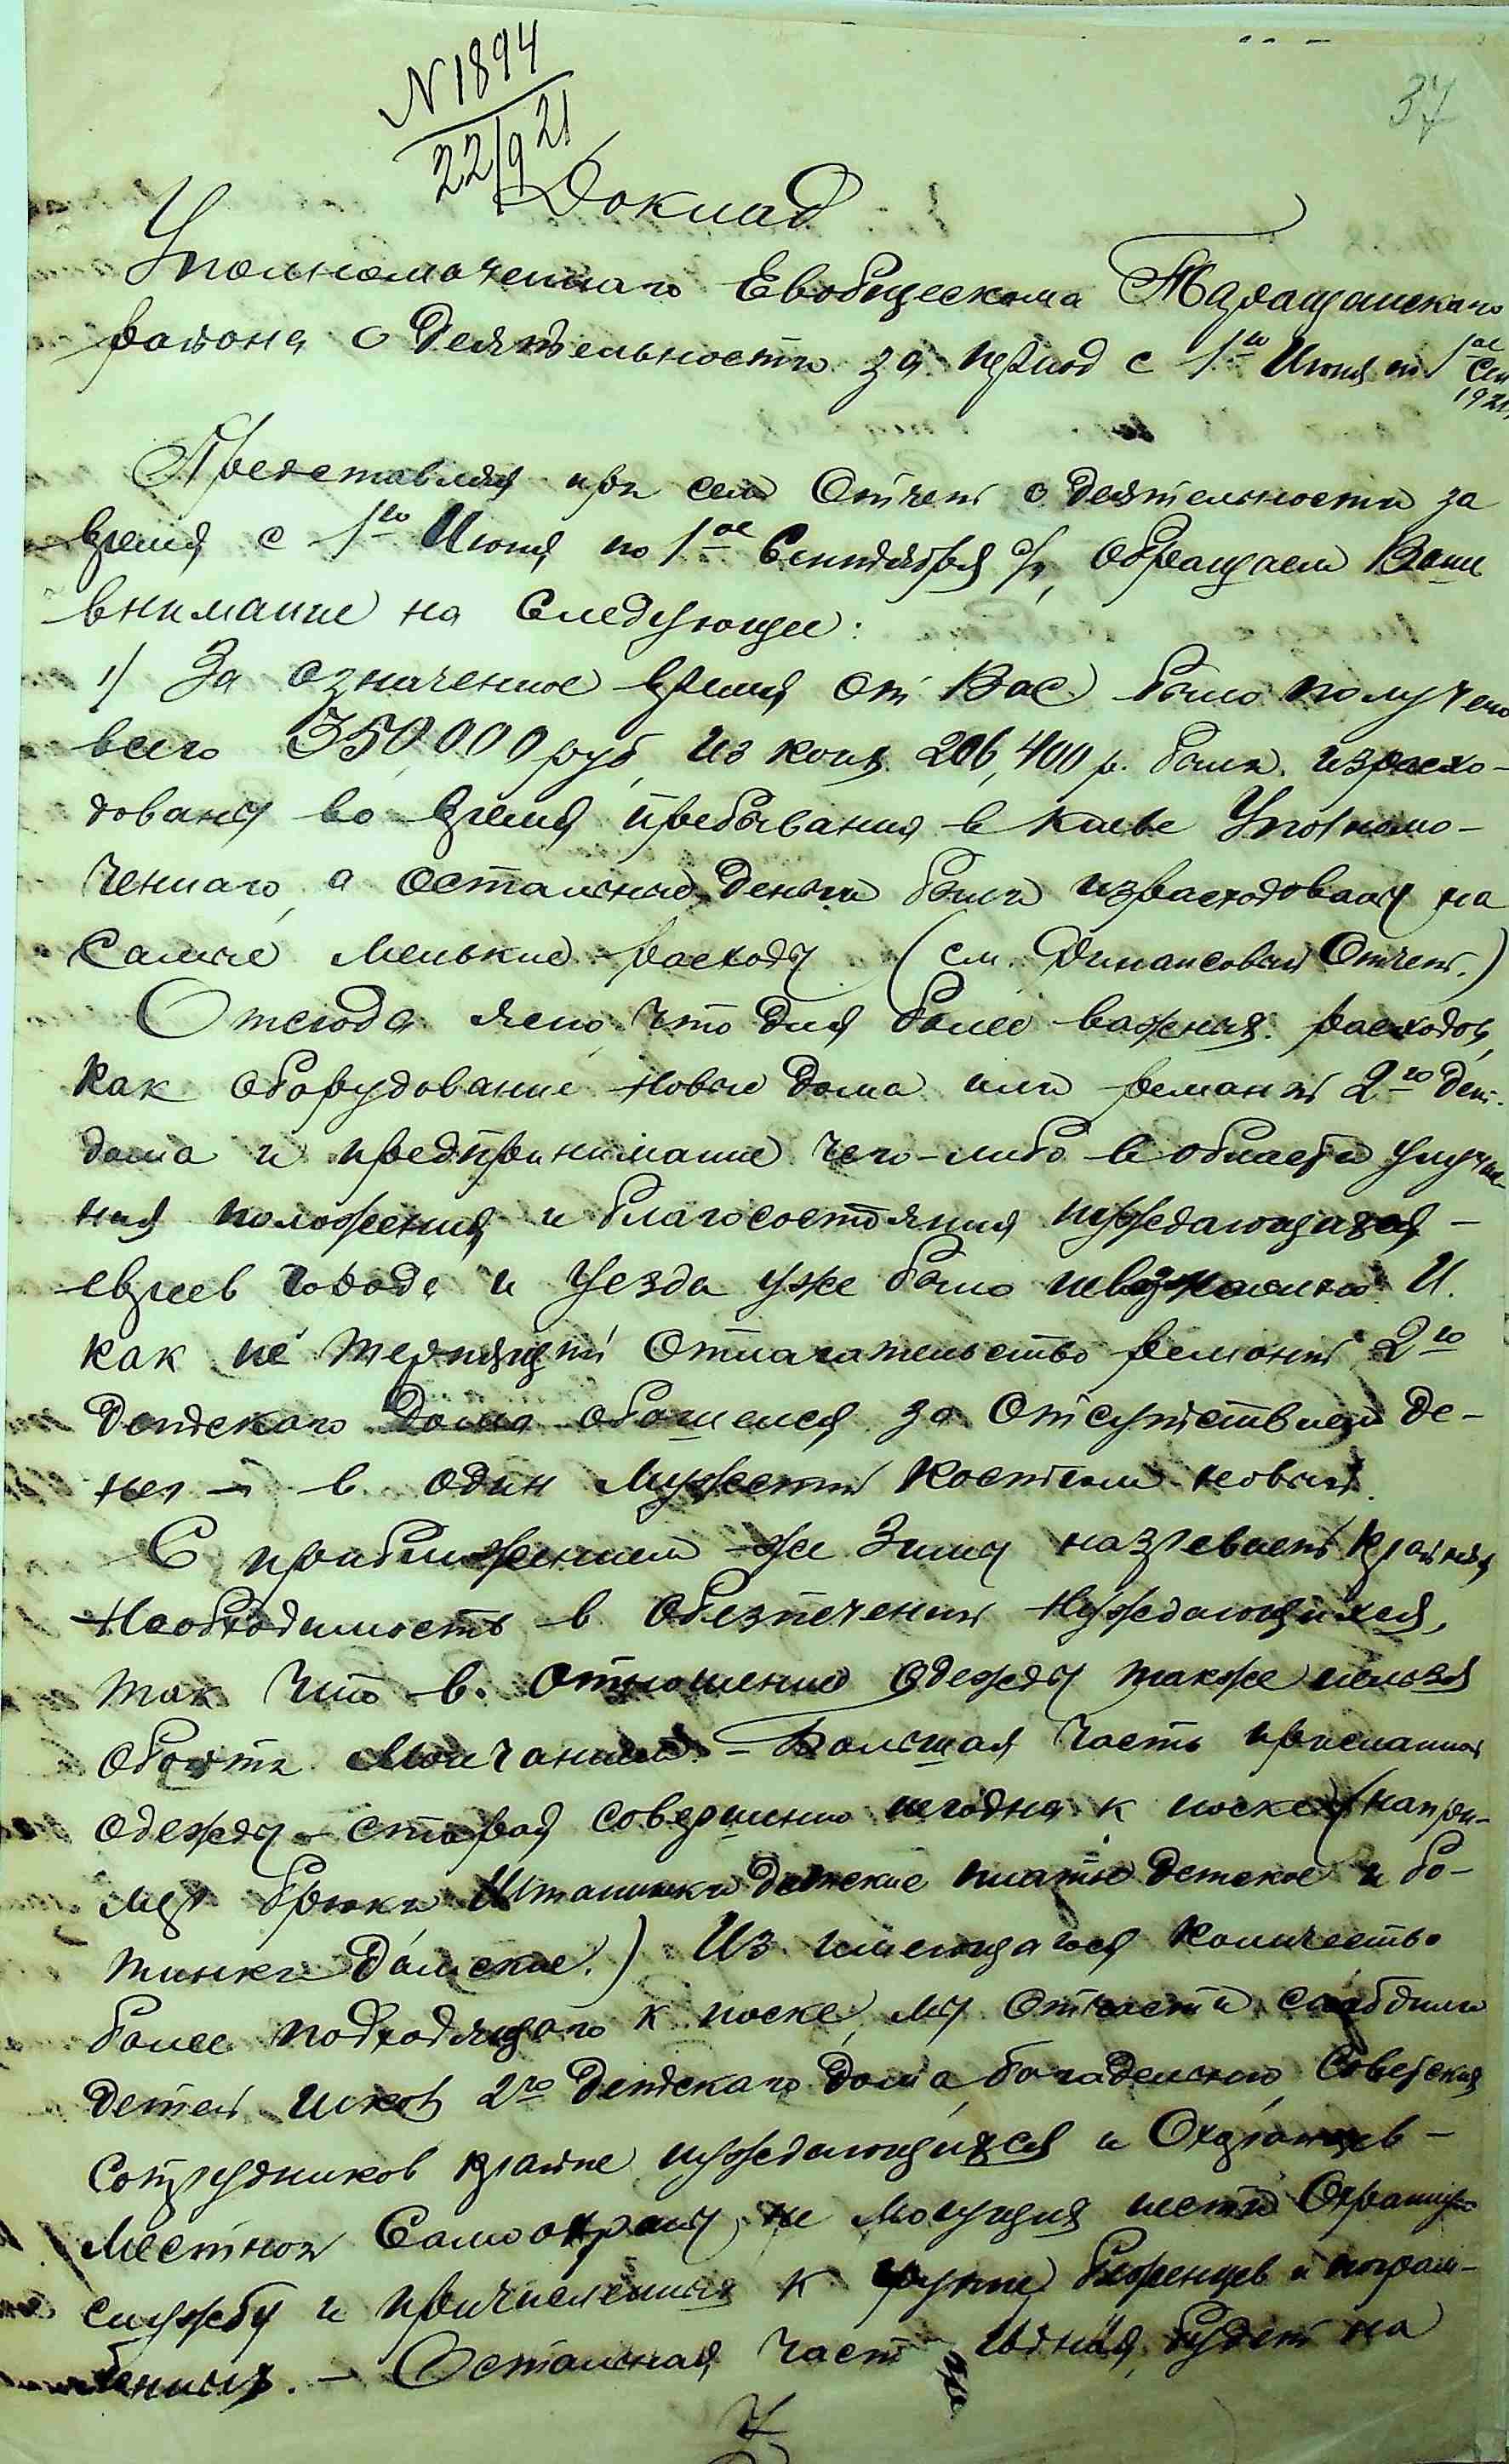 N 1894
22/9 21
37
Доклад
Уполномоченнаго Евобщескома Таращанскаго
района о деятельности за период с 1го Июня по 1ое Сен
1921
Представляя при сем Отчет о деятельности за
время с 1го Июня по 1ое Сентября с/г, обращаем Ваше
внимание на следующее:
1/ За означенное время от Вас было получено
всего 350,000 руб, из коих 206,400 р. были израсхо-
дованы во время пребывания в Киеве Уполномо-
ченнаго, а остальные деньги были израсходованы на
самые мелькие расходы (см. Финансовый Отчет.)
Отсюда ясно, что для более важных расходов,
как оборудование новые дома или ремонт 2го дет.
дома и предпринимание чего-либо в области улучше-
ния положения и благосостояния нуждающихся -
евреев города и уезда уже было невозможно. И.
как не терпящий отлагательство ремонт 2го
детскаго дома обошелся за отсутствием де-
нег - в один мужской костюм новый.
С приближением же Зимы назревает крайняя
необходимость в обезпечении нуждающихся,
так что в отношении одежды также нельзя
обойти молчанием. - Большая часть присланной
одежды - старая совершенно негодная к носке (напри-
мер брюки штанишки детские платье детское и бо-
тинки дамские.) Из имеющагося количество
более подходящаго к носке, мы отчасти снабдили
детей школ 2го детскаго дома, богадельню, Советских
сотрудников крайне нуждающихся и Охранцев -
местной Самоохраны, не могущия нести Охранную
службу и причисленных к группе беженцев и погром-
бенных. - Остальная часть будет на